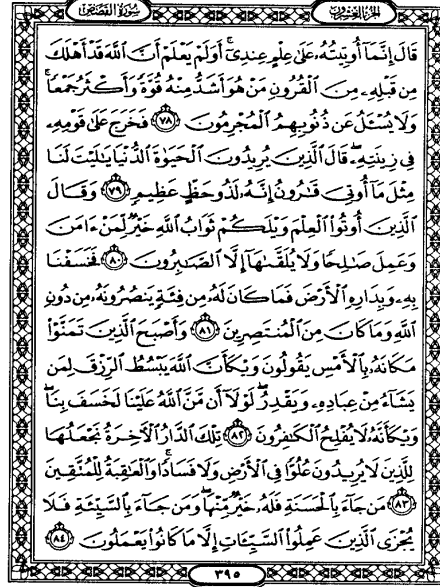 الجُزْءُ العِشْرُونَ
سُورَةُ القَصَصِ
قَالَ إِنَّمَآ أُوتِيتُهُۥ عَلَىٰ عِلْمٍ عِندِىٓۚ أَوَلَمْ يَعْلَمْ أَنَّ ٱللَّهَ قَدْ أَهْلَكَ
مِن قَبْلِهِۦ مِنَ ٱلْقُرُونِ مَنْ هُوَ أَشَدُّ مِنْهُ قُوَّةً وَأَكْثَرُ جَمْعًاۚ
وَلَا يُسْـَٔلُ عَن ذُنُوبِهِمُ ٱلْمُجْرِمُونَ ٧٨ فَخَرَجَ عَلَىٰ قَوْمِهِۦ
فِى زِينَتِهِۦۖ قَالَ ٱلَّذِينَ يُرِيدُونَ ٱلْحَيَوٰةَ ٱلدُّنْيَا يَٰلَيْتَ لَنَا
مِثْلَ مَآ أُوتِىَ قَٰرُونُ إِنَّهُۥ لَذُو حَظٍّ عَظِيمٍ ٧٩ وَقَالَ
ٱلَّذِينَ أُوتُوا۟ ٱلْعِلْمَ وَيْلَكُمْ ثَوَابُ ٱللَّهِ خَيْرٌ لِّمَنْ ءَامَنَ
وَعَمِلَ صَٰلِحًا وَلَا يُلَقَّىٰهَآ إِلَّا ٱلصَّٰبِرُونَ ٨٠ فَخَسَفْنَا
بِهِۦ وَبِدَارِهِ ٱلْأَرْضَ فَمَا كَانَ لَهُۥ مِن فِئَةٍ يَنصُرُونَهُۥ مِن دُونِ
ٱللَّهِ وَمَا كَانَ مِنَ ٱلْمُنتَصِرِينَ ٨١ وَأَصْبَحَ ٱلَّذِينَ تَمَنَّوْا۟
مَكَانَهُۥ بِٱلْأَمْسِ يَقُولُونَ وَيْكَأَنَّ ٱللَّهَ يَبْسُطُ ٱلرِّزْقَ لِمَن
يَشَآءُ مِنْ عِبَادِهِۦ وَيَقْدِرُۖ لَوْلَآ أَن مَّنَّ ٱللَّهُ عَلَيْنَا لَخَسَفَ بِنَاۖ
وَيْكَأَنَّهُۥ لَا يُفْلِحُ ٱلْكَٰفِرُونَ ٨٢ تِلْكَ ٱلدَّارُ ٱلْآخِرَةُ نَجْعَلُهَا
لِلَّذِينَ لَا يُرِيدُونَ عُلُوًّا فِى ٱلْأَرْضِ وَلَا فَسَادًاۚ وَٱلْعَٰقِبَةُ لِلْمُتَّقِينَ
٨٣ مَن جَآءَ بِٱلْحَسَنَةِ فَلَهُۥ خَيْرٌ مِّنْهَاۖ وَمَن جَآءَ بِٱلسَّيِّئَةِ فَلَا
يُجْزَى ٱلَّذِينَ عَمِلُوا۟ ٱلسَّيِّـَٔاتِ إِلَّا مَا كَانُوا۟ يَعْمَلُونَ ٨٤
٣٩٥